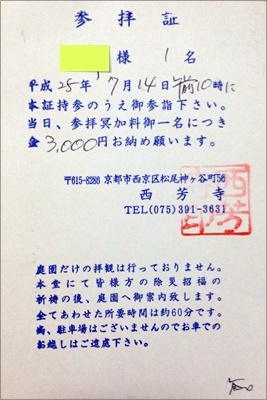 参拝証
様 1名
平成25年7月14日午前10時に
本証持参のうえ御参詣下さい。
当日、参拝冥加料御一名につき
金3,000円お納め願います。
〒615-8286 京都市西京区松尾神ヶ谷町56
西芳寺
TEL(075)391-3631
西芳寺印
庭園だけの拝観は行っておりません。
本堂にて皆様方の除災招福の
祈祷の後、庭園へ御案内致します。
全てあわせた所要時間は約60分です。
尚、駐車場はございませんのでお車での
お越しはご遠慮下さい。